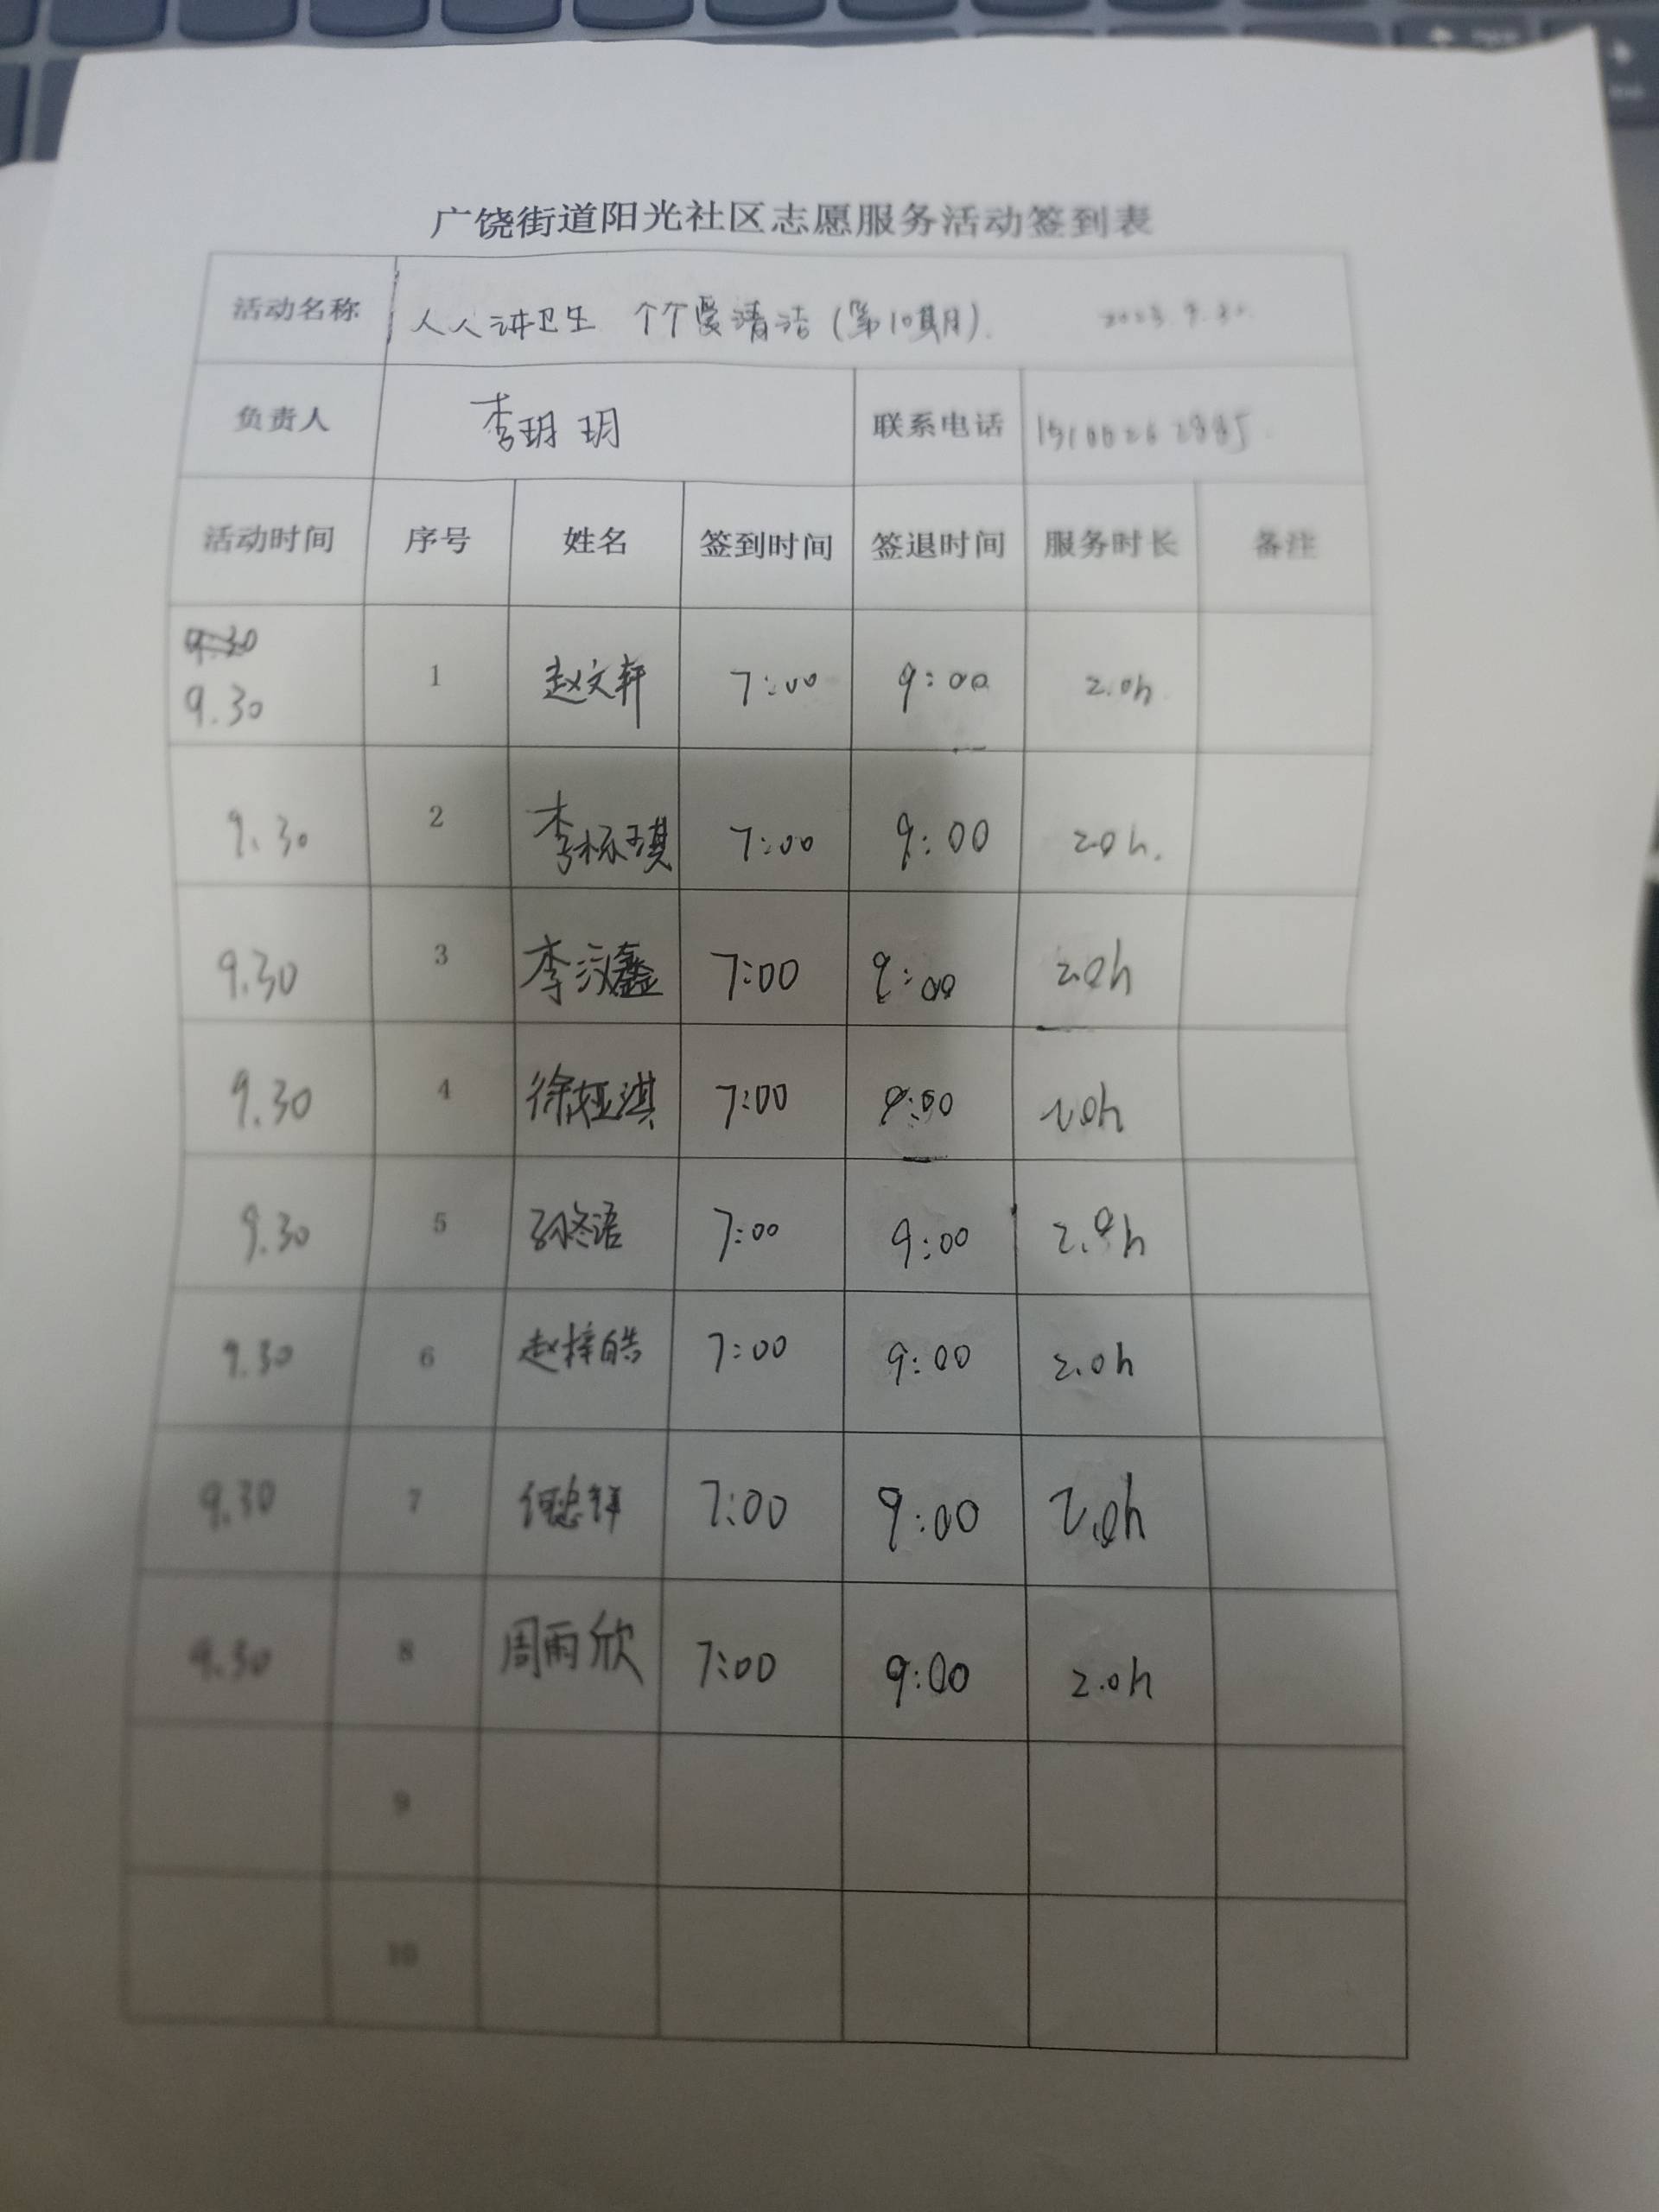 广饶街道阳光社区志愿服务活动签到表
活动名称 人人讲卫生 个个爱清洁(第10期) 2023.9.30
负责人 李玥玥 联系电话
活动时间 序号 姓名 签到时间 签退时间 服务时长 备注
9.30 1 赵文轩 7:00 9:00 2.0h
9.30 2 7:00 9:00 2.0h.
9.30 3 李汶鑫 7:00 9:00 2.0h
9.30 4 徐娅淇 7:00 9:00 2.0h
9.30 5 孙冬语 7:00 9:00 2.0h
9.30 6 赵梓皓 7:00 9:00 2.0h
9.30 7 7:00 9:00 2.0h
9.30 8 周雨欣 7:00 9:00 2.0h
9
10